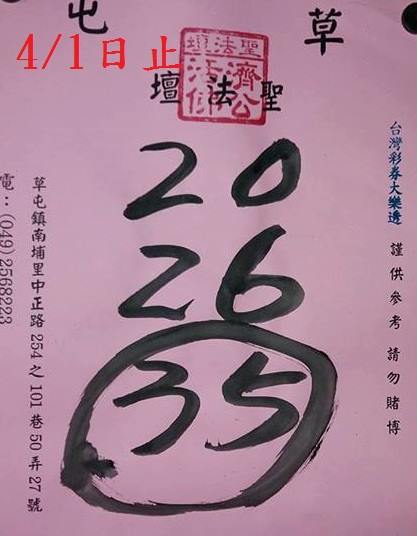 草屯
4/1日止
聖法壇
濟公
活佛
聖法壇
台灣彩券大樂邊 謹供參考 請勿賭博
20
26
35
草屯鎮南埔里中正路254之101巷50弄27號
電:(049)2568223